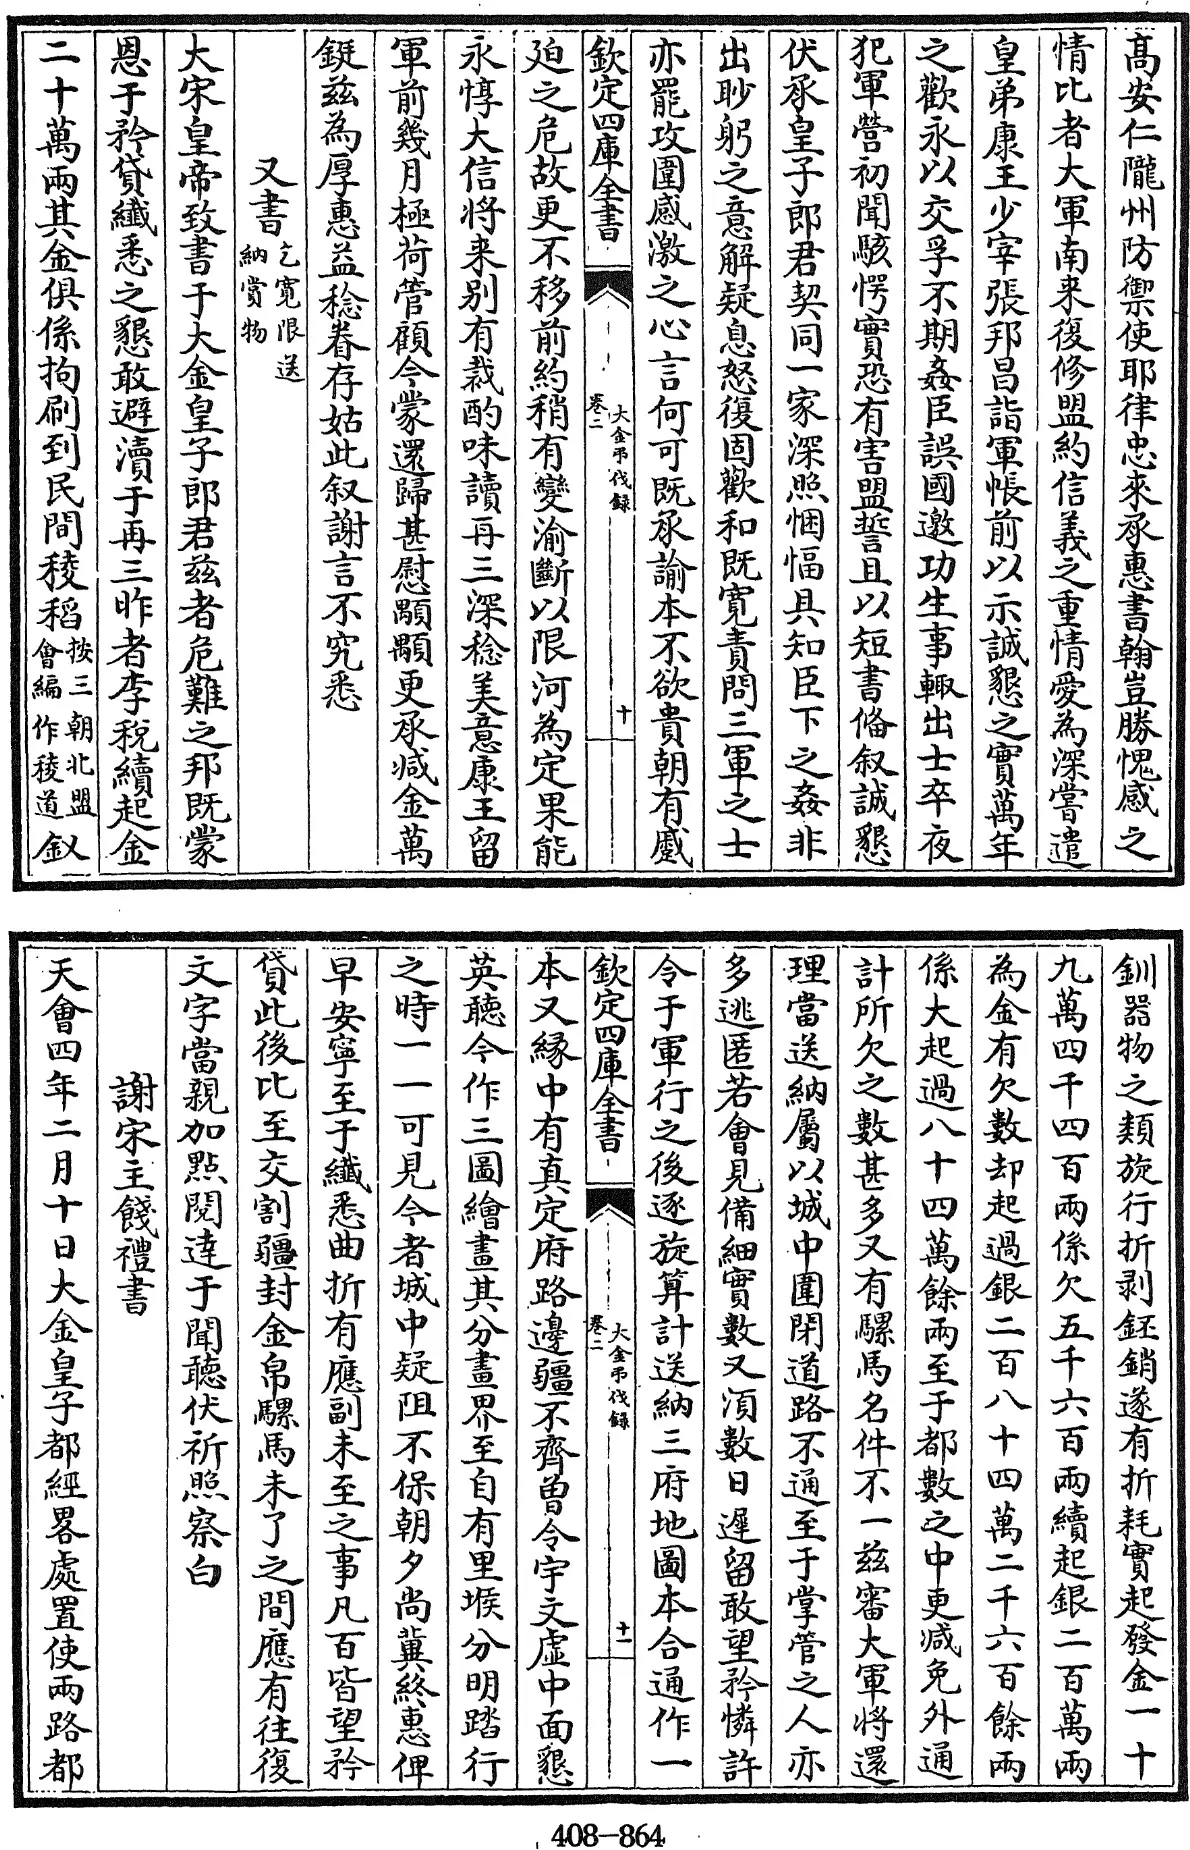 髙安仁隴州防禦使耶律忠來承惠書翰豈勝愧感之
情比者大軍南来復修盟約信義之重情愛為深嘗遣
皇弟康王少宰張邦昌詣軍帳前以示誠懇之實萬年
之歡永以交孚不期姦臣誤國邀功生事輙出士卒夜
犯軍營初聞駭愕實恐有害盟誓且以短書俻叙誠懇
伏承皇子郎君契同一家深照悃愊具知臣下之姦非
出眇躬之意解疑息怒復固歡和既寛責問三軍之士
亦罷攻圍感激之心言何可既承諭本不欲貴朝有蹙
欽定四庫全書
大金弔伐録
卷二
十
廹之危故更不移前約稍有變渝斷以限河為定果能
永惇大信將来别有裁酌味讀再三深稔美意康王留
軍前幾月極荷管顧今蒙還歸甚慰顒顒更承减金萬
鋌兹為厚惠益稔眷存姑此叙謝言不究悉
又書乞寛限送
納賞物
大宋皇帝致書于大金皇子郎君兹者危難之邦既蒙
恩于矜貸纎悉之懇敢避瀆于再三昨者李梲續起金
二十萬兩其金俱係拘刷到民間稜稻按三朝北盟
會編作稜道釵
釧器物之類旋行折剥鉟銷遂有折耗實起發金一十
九萬四千四百兩係欠五千六百兩續起銀二百萬兩
為金有欠數却起過銀二百八十四萬二千六百餘兩
係大起過八十四萬餘兩至于都數之中更减免外通
計所欠之數甚多又有騾馬名件不一兹審大軍將還
理當送納屬以城中圍閉道路不通至于掌管之人亦
多逃匿若會見備細實數又湏數日遲留敢望矜憐許
令于軍行之後逐旋算計送納三府地圖本合通作一
欽定四庫全書
大金弔伐録
卷二
十一
本又緣中有真定府路邊疆不齊曾令宇文虚中面懇
英聽今作三圖繪畫其分畫界至自有里堠分明踏行
之時一一可見今者城中疑阻不保朝夕尚冀終惠俾
早安寧至于纎悉曲折有應副未至之事凡百皆望矜
貸此後比至交割疆封金帛騾馬未了之間應有往復
文字當親加點閲逹于聞聽伏祈照察白
謝宋主餞禮書
天會四年二月十日大金皇子都經畧處置使兩路都
408-864